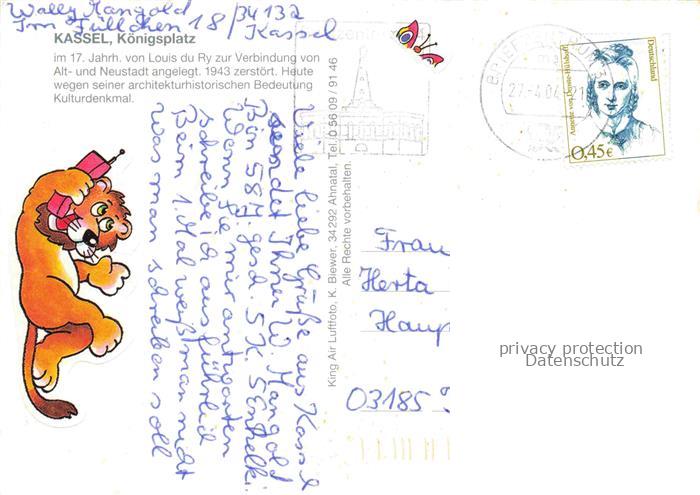 Wally Mangold
Im Füllchen 18 / 34132
Kassel
KASSEL, Königsplatz
im 17. Jahrh. von Louis du Ry zur Verbindung von
Alt- und Neustadt angelegt. 1943 zerstört. Heute
wegen seiner architekturhistorischen Bedeutung
Kulturdenkmal.
Viele liebe Grüße aus Kassel
sendet Ihnen W. Mangold
Bin 58 J. gesch. 5 K. 5 Enkelki.
Wenn Sie mir antworten
schreibe ich ausführlich
Beim 1. Mal weiß man nicht
was man schreiben soll
King Air Luftfoto, K. Biewer, 34292 Ahnatal, Tel. 0 56 09 / 91 46
Alle Rechte vorbehalten.
BRIEFZENTRUM
27-4.04-21
Deutschland
Annette von Droste-Hülshoff
0,45€
Frau
Herta
Haup
03185
privacy protection
Datenschutz